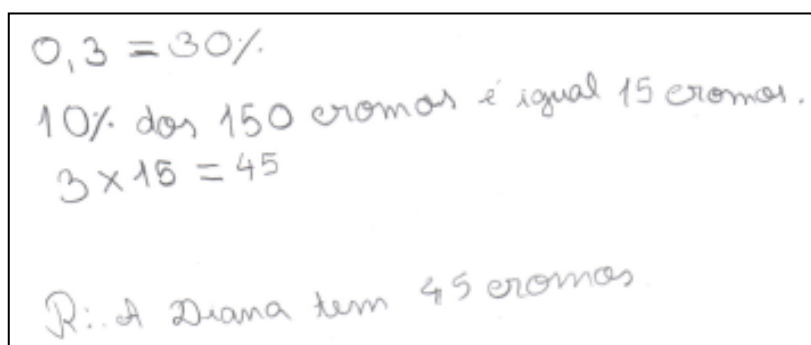 0,3 = 30%
10% dos 150 cromos é igual 15 cromos.
3 x 15 = 45
R: A Diana tem 45 cromos